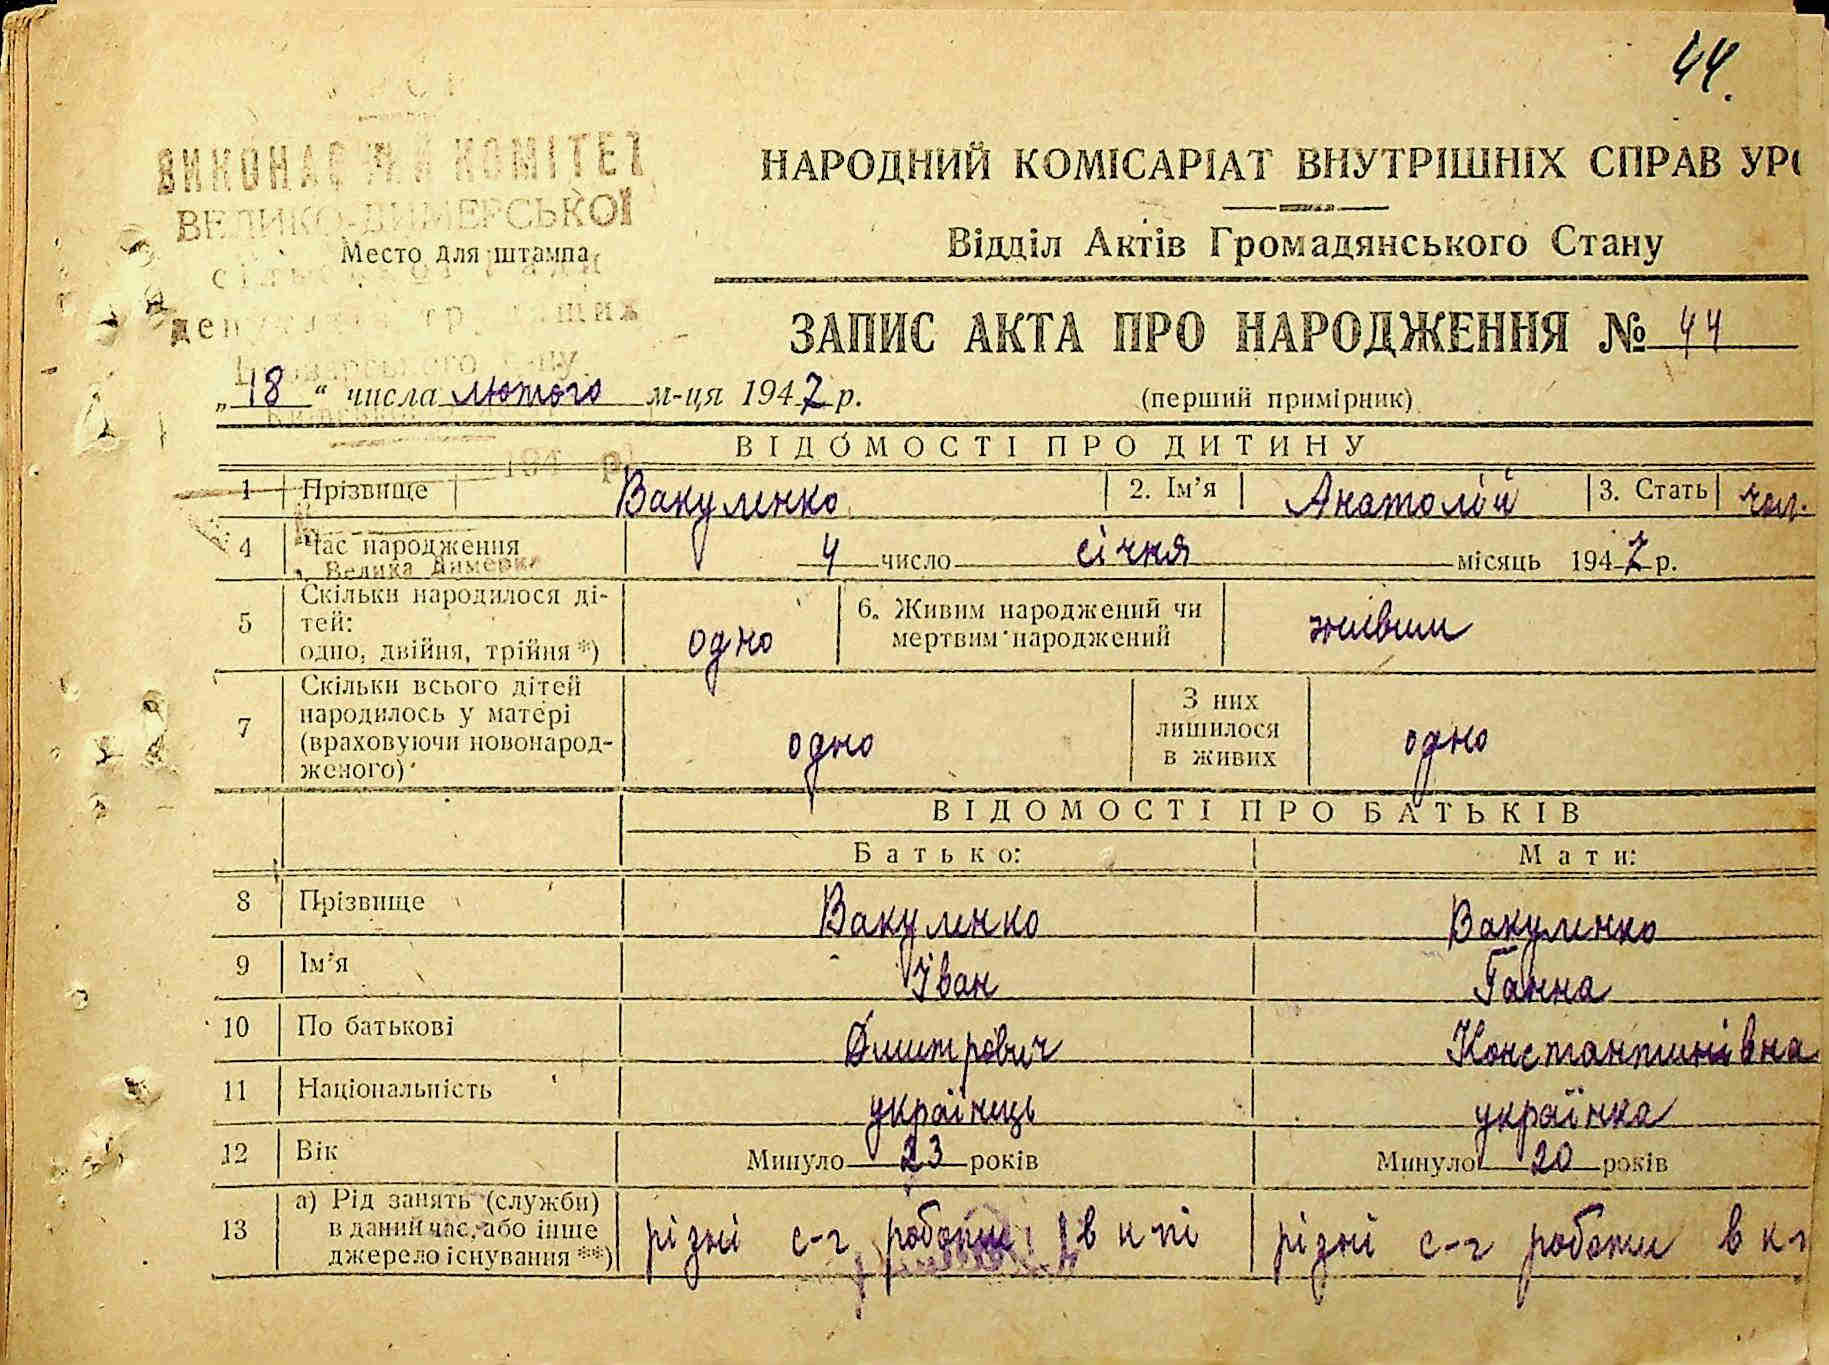 44.
ВИКОНАВЧИЙ КОМІТЕТ
ВЕЛИКО-ДИМЕРСЬКОЇ
Место для штампа
НАРОДНИЙ КОМІСАРІАТ ВНУТРІШНІХ СПРАВ УРС
Відділ Актів Громадянського Стану
ЗАПИС АКТА ПРО НАРОДЖЕННЯ № 44
„18“ числа лютого м-ця 1947 р.
(перший примірник)
ВІДОМОСТІ ПРО ДИТИНУ
1 Прізвище Вакуленко 2. Ім’я Анатолій 3. Стать чол.
4 Час народження 4 число січня місяць 1947 р.
Велика Димерка
5 Скільки народилося ді-
тей:
одно, двійня, трійня *) одно
6. Живим народжений чи
мертвим народжений живим
7 Скільки всього дітей
народилось у матері
(враховуючи новонарод-
женого) одно
З них
лишилося
в живих одно
ВІДОМОСТІ ПРО БАТЬКІВ
Батько: Мати:
8 Прізвище Вакуленко Вакуленко
9 Ім’я Іван Ганна
10 По батькові Дмитрович Константинівна
11 Національність українець українка
12 Вік Минуло 23 років Минуло 20 років
13 а) Рід занять (служби)
в даний час, або інше
джерело існування **)
різні с-г роботи в к-пі різні с-г роботи в к-